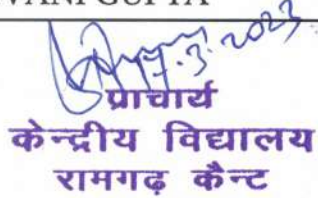 VANI GUPTA
17.3.2023
प्राचार्य
केन्द्रीय विद्यालय
रामगढ़ कैन्ट